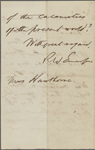 of the calamities
of the present world?
With great regard,
R. W. Emerson
Mrs Hawthorne.